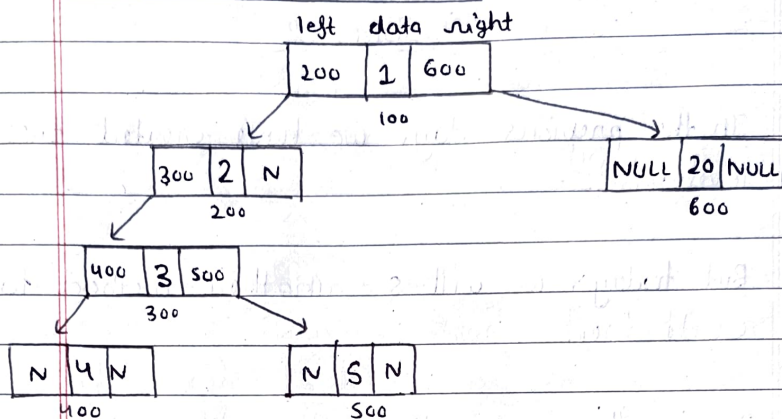 left data right
200 1 600
100
300 2 N
200
NULL 20 NULL
600
400 3 500
300
N 4 N
400
N 5 N
500